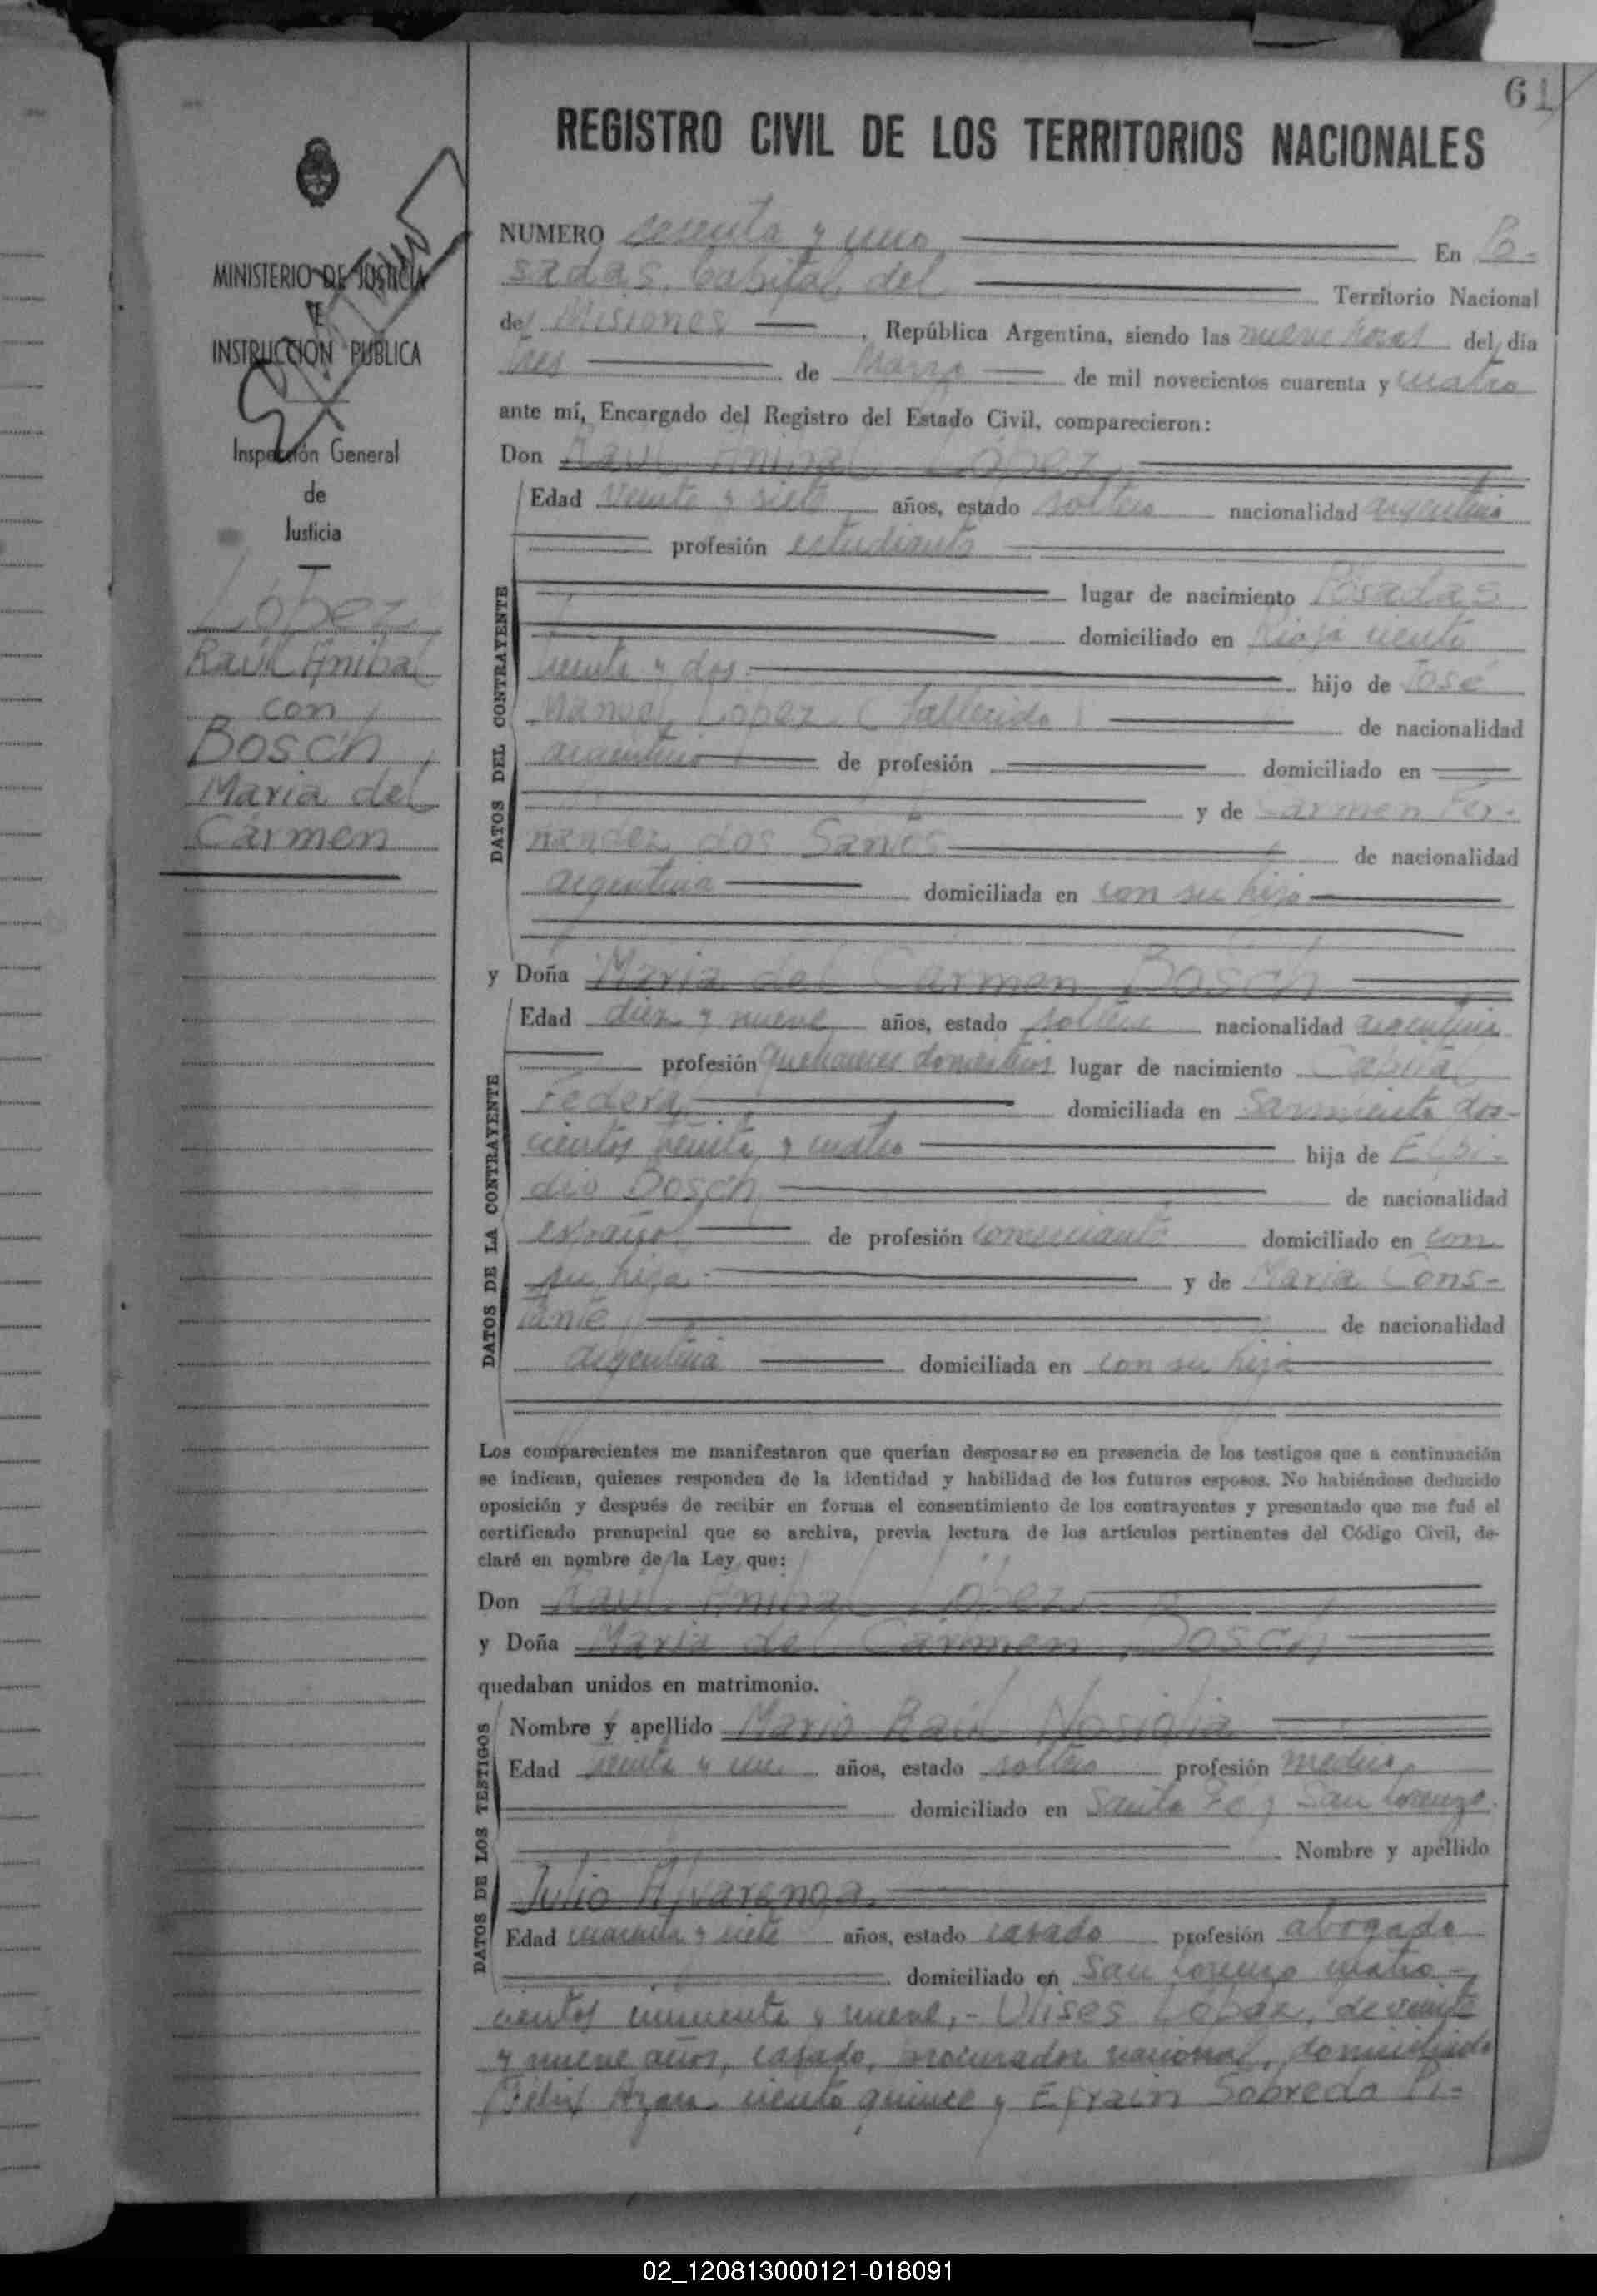 61
REGISTRO CIVIL DE LOS TERRITORIOS NACIONALES
MINISTERIO DE JUSTICIA
E
INSTRUCCIÓN PÚBLICA
Inspección General
de
Justicia
López
Raúl Anibal
con
Bosch
Maria del
Cármen
NUMERO sesenta y uno En Po-
sadas, Capital del Territorio Nacional
de Misiones, República Argentina, siendo las nueve horas del día
tres de Marzo de mil novecientos cuarenta y cuatro
ante mí, Encargado del Registro del Estado Civil, comparecieron:
Don Raúl Anibal López
Edad veinte y siete años, estado soltero nacionalidad argentino
profesión estudiante
DATOS DEL CONTRAYENTE
lugar de nacimiento Posadas
domiciliado en Rioja ciento
veinte y dos hijo de José
Manuel López (fallecido) de nacionalidad
argentino de profesión domiciliado en
y de Carmen Fer-
nandez dos Santos de nacionalidad
argentina domiciliada en con su hijo
y Doña Maria del Carmen Bosch
Edad diez y nueve años, estado soltera nacionalidad argentina
profesión quehaceres domésticos lugar de nacimiento Capital
DATOS DE LA CONTRAYENTE
Federal domiciliada en Sarmiento dos-
cientos treinta y cuatro hija de Elpi-
dio Bosch de nacionalidad
español de profesión comerciante domiciliado en con
su hija y de Maria Cons-
tante de nacionalidad
argentina domiciliada en con su hija
Los comparecientes me manifestaron que querían desposarse en presencia de los testigos que a continuación
se indican, quienes responden de la identidad y habilidad de los futuros esposos. No habiéndose deducido
oposición y después de recibir en forma el consentimiento de los contrayentes y presentado que me fué el
certificado prenupcial que se archiva, previa lectura de los artículos pertinentes del Código Civil, de-
claré en nombre de la Ley que:
Don Raúl Anibal López
y Doña Maria del Carmen Bosch
quedaban unidos en matrimonio.
DATOS DE LOS TESTIGOS
Nombre y apellido Mario Raúl Nosiglia
Edad treinta y un años, estado soltero profesión medico
domiciliado en Santa Fe y San Lorenzo.
Nombre y apellido
Julio Alvarenga
Edad cuarenta y siete años, estado casado profesión abogado
domiciliado en San Lorenzo cuatro-
cientos cincuenta y nueve,- Ulises López, de veinte
y nueve años, casado, procurador nacional, domiciliado
Félix Azara ciento quince y Efrain Sobreda Pi-
02_120813000121-018091